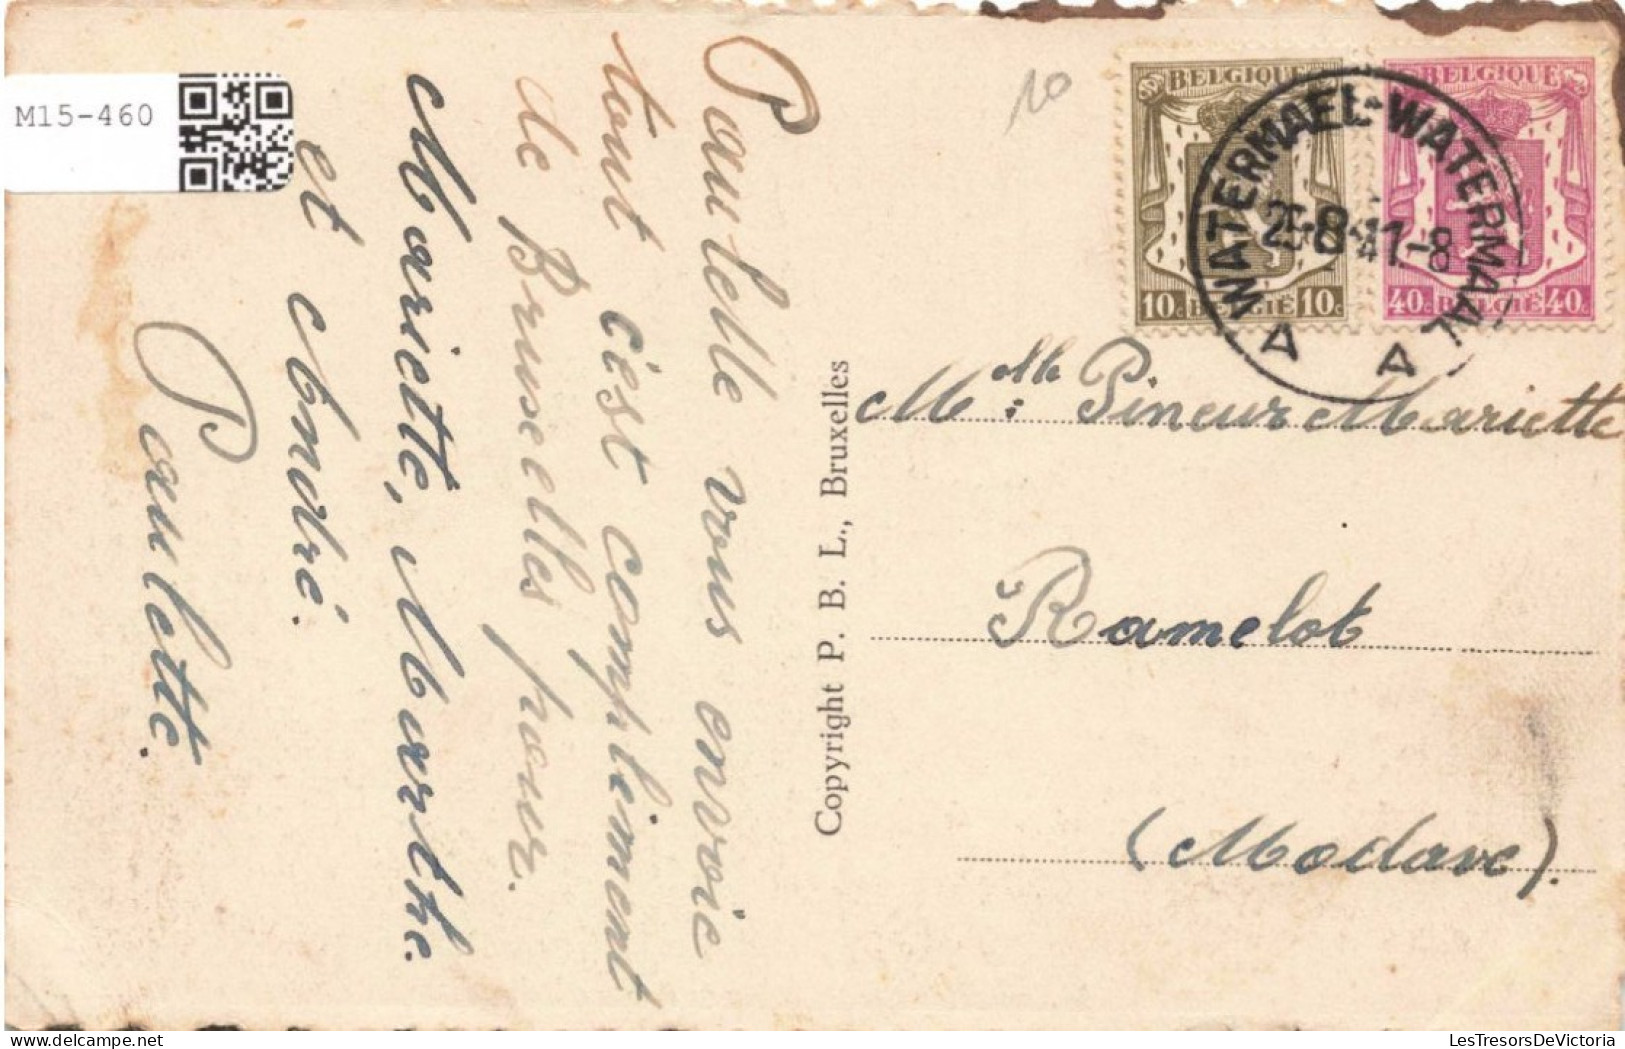 M15-460
Paulette vous envoie
tout c'est compliment
de Bruxelles pour.
Mariette, Marthe.
et André.
Paulette.
Copyright P. B. L., Bruxelles
10
BELGIQUE
10c BELGIË 10c
BELGIQUE
40c BELGIË 40c
WATERMAEL-WATERMAAL
25-8-41-8
A A
Melle: Pineur Mariette
Ramelot
(Modave).
LesTresorsDeVictoria